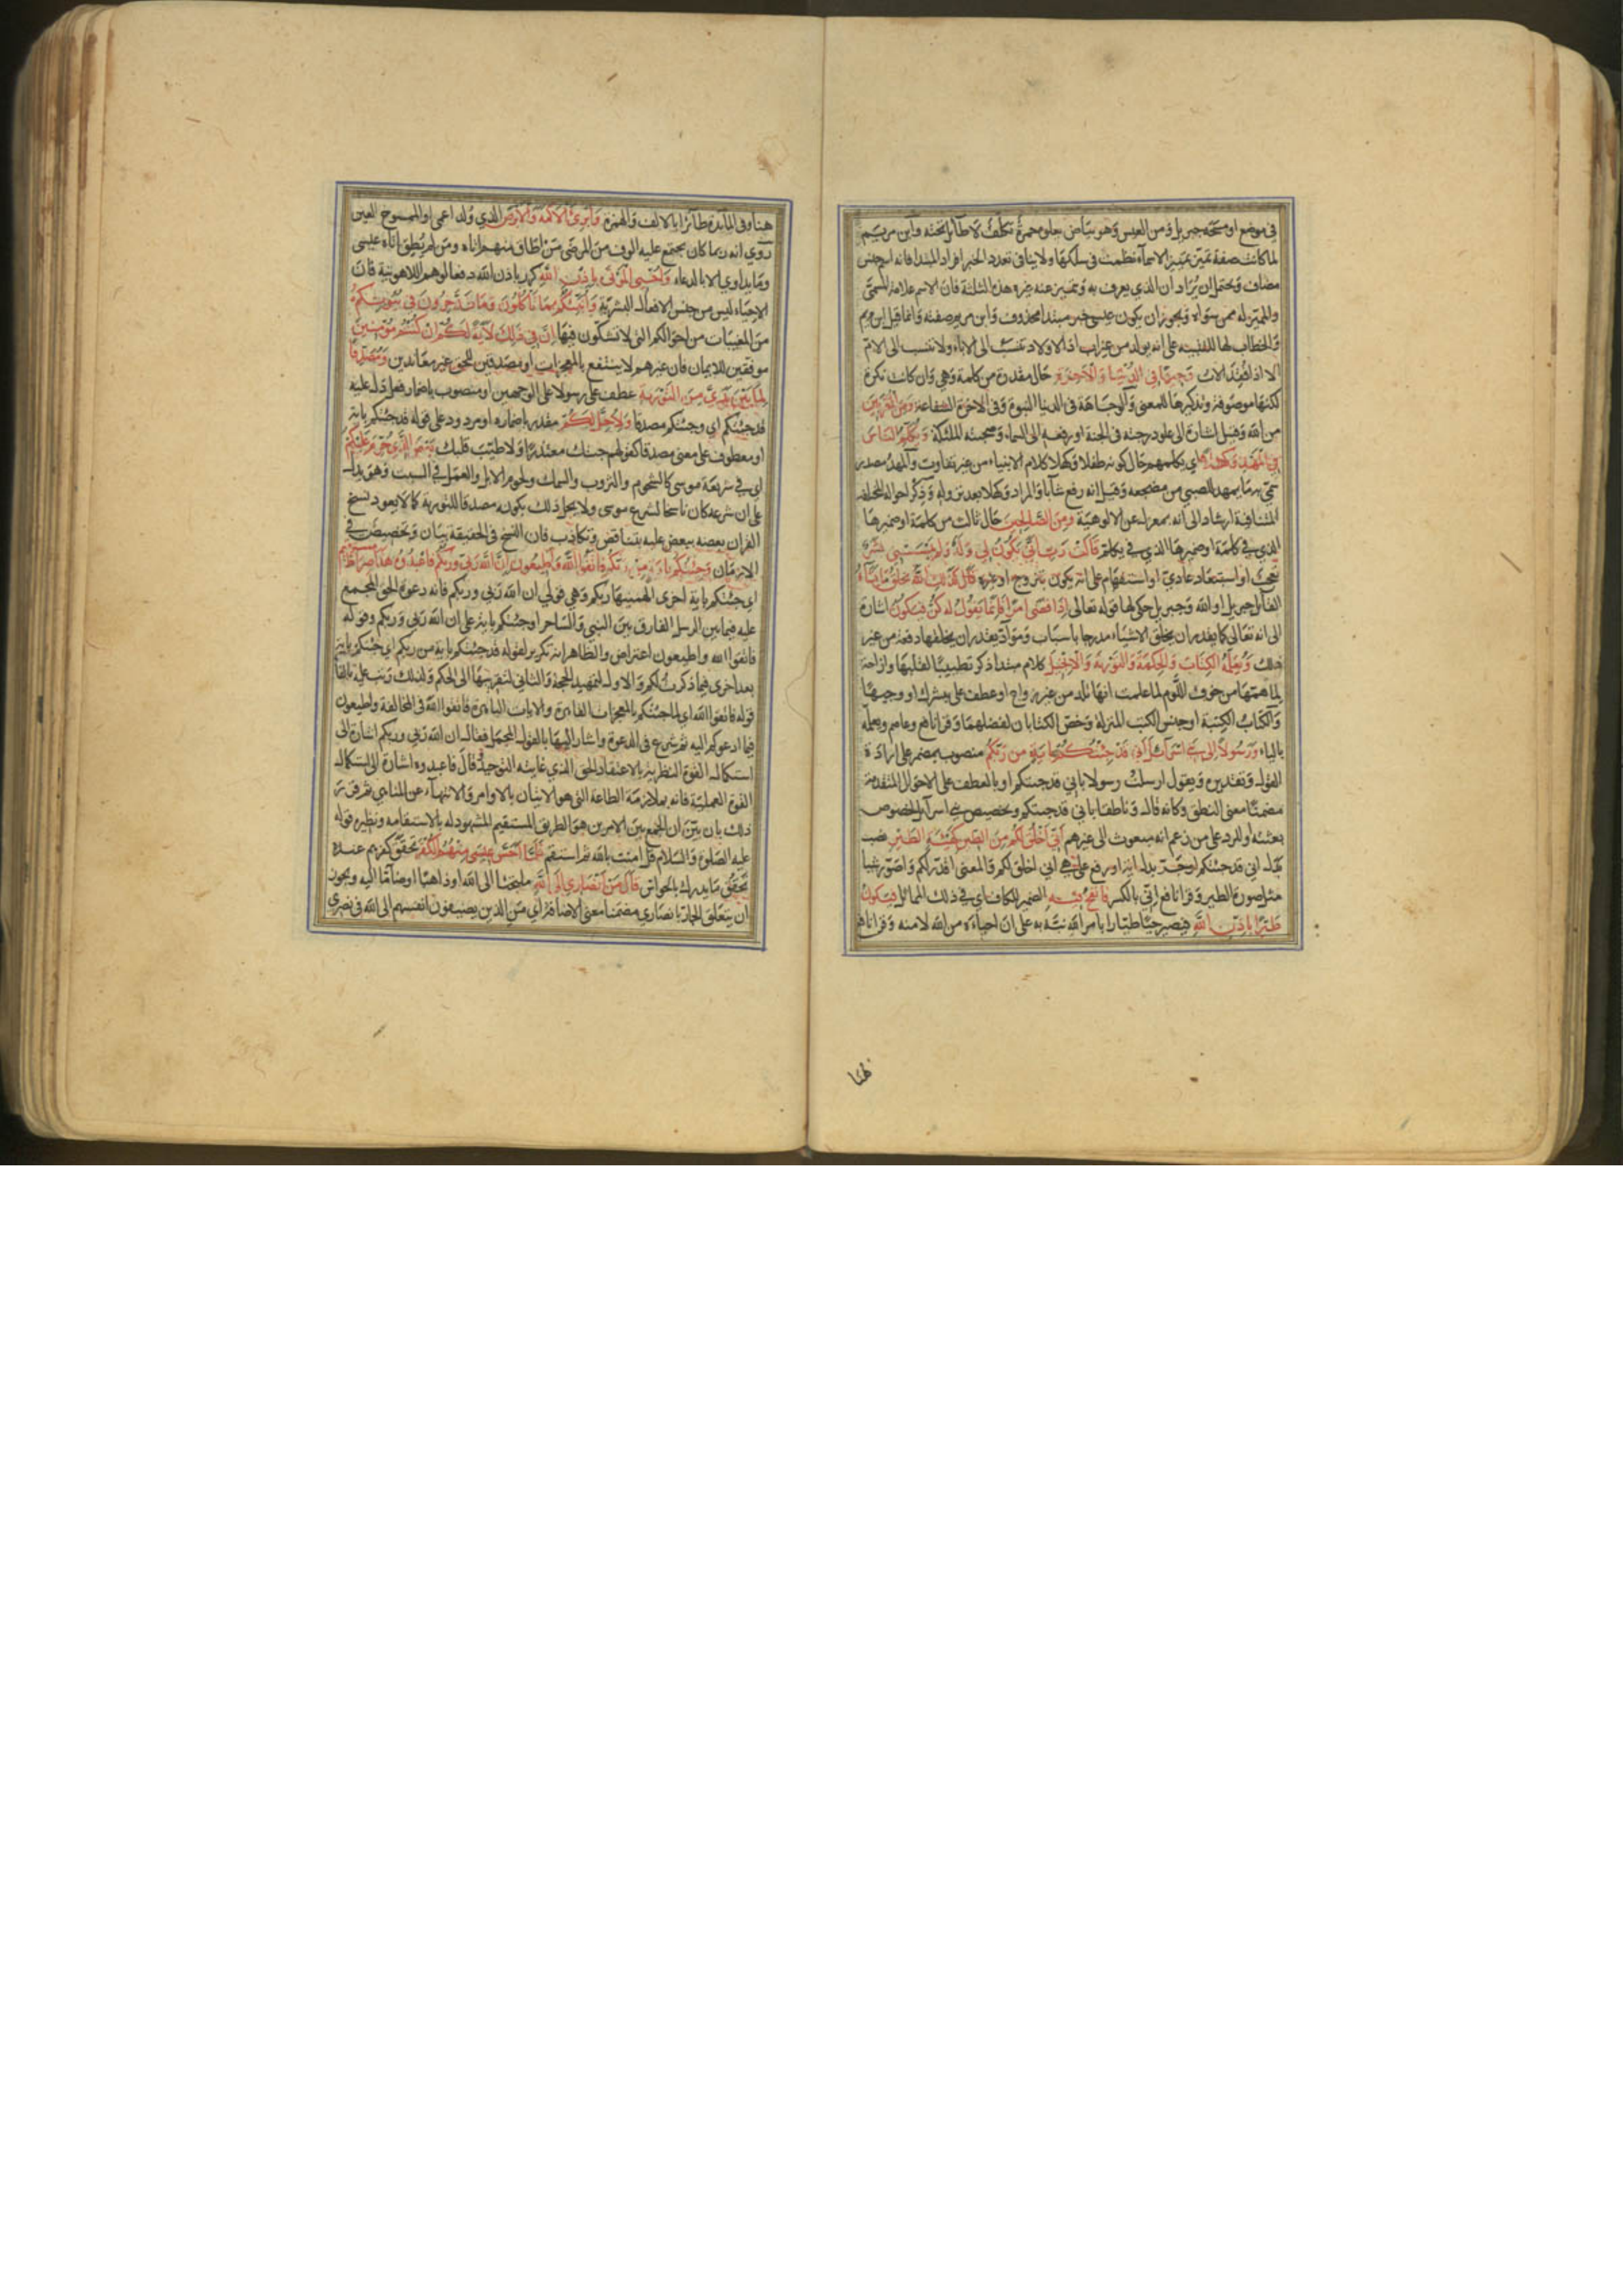 في موضع او مسحه جبريل ومن العيس وهو بياض يعلوه حمرة تكلف لا طائل تحته وابن مريم
لما كانت صفة تميز تمييز الاسماء نظمت في سلكها ولا ينافي تعدد الخبر افراد المبتدا فانه اسم جنس
مضاف ويحتمل ان يراد ان الذي يعرف به ويتميز عنه غيره هذه الثلثة فان الاسم علامة المسمى
والمميز له ممن سواه ويجوز ان يكون عيسى خبر مبتدا محذوف وابن مريم صفته وانما قيل ابن مريم
والخطاب لها للتنبيه على انه يولد من غير اب اذ الاولاد تنسب الى الاباء ولا تنسب الى الام
الا اذا فقد الاب وجيها في الدنيا والاخرة حال مقدرة من كلمة وهي وان كانت نكرة
لكنها موصوفة وتذكيرها للمعنى والوجاهة في الدنيا النبوة وفي الاخرة الشفاعة ومن المقربين
من الله وقيل اشارة الى علو درجته في الجنة او رفعه الى السماء وصحبته الملئكة ويكلم الناس
في المهد وكهلا اي يكلمهم حال كونه طفلا وكهلا كلام الانبياء من غير تفاوت والمهد مصدر
سمي به ما يمهد للصبي من مضجعه وقيل انه رفع شابا والمراد وكهلا بعد نزوله وذكر احواله المختلفة
المتنافية ارشاد الى انه بمعزل عن الالوهية ومن الصالحين حال ثالث من كلمة او ضميرها
الذي في كلمة او ضميرها الذي في يكلم قالت رب انى يكون لي ولد ولم يمسسني بشر
تعجب او استبعاد عادي او استفهام على انه يكون بتزوج او غيره قال كذلك الله يخلق ما يشاء
القائل جبريل او الله وجبريل حكى لها قوله تعالى اذا قضى امرا فانما يقول له كن فيكون اشارة
الى انه تعالى كما يقدر ان يخلق الاشياء مدرجا باسباب ومواد يقدر ان يخلقها دفعة من غير
ذلك ويعلمه الكتاب والحكمة والتورية والانجيل كلام مبتدا ذكر تطييبا لقلبها وازاحة
لما همتها من خوف اللوم لما علمت انها تلد من غير زواج او عطف على يبشرك او وجيها
والكتاب الكتبة او جنس الكتب المنزلة وخص الكتابان لفضلهما وقرا نافع وعاصم ويعلمه
بالياء ورسولا الى بني اسرائل اني قد جئتكم باية من ربكم منصوب بمضمر على ارادة
القول وتقديره ويقول ارسلت رسولا باني قد جئتكم او بالعطف على الاحوال المتقدمة
مضمنا معنى النطق وكانه قال وناطقا باني قد جئتكم وتخصيص بني اسرائل لخصوص
بعثته او للرد على من زعم انه مبعوث الى غيرهم اني اخلق لكم من الطين كهيئة الطير نصب
بدل اني قد جئتكم او جر بدل اية او رفع على هي اني اخلق لكم والمعنى اقدر لكم واصور شيا
مثل صورة الطير وقرا نافع اني بالكسر فانفخ فيه الضمير للكاف اي في ذلك المماثل فيكون
طيرا باذن الله فيصير حيا طيارا بامر الله نبه به على ان احياءه من الله لا منه وقرا نافع
ههنا
هنا وفي المائدة طائرا بالالف والهمزة وابرئ الاكمه والابرص الذي ولد اعمى او الممسوح العين
روي انه ربما كان يجتمع عليه الوف من المرضى من اطاق منهم اتاه ومن لم يطق اتاه عيسى
وما يداوي الا بالدعاء واحيى الموتى باذن الله كرر باذن الله دفعا لوهم اللاهوتية فان
الاحياء ليس من جنس الافعال البشرية وانبئكم بما تاكلون وما تدخرون في بيوتكم
من المغيبات من احوالكم التي لا تشكون فيها ان في ذلك لآية لكم ان كنتم مؤمنين
موفقين للايمان فان غيرهم لا ينتفع بالمعجزات او مصدقين للحق غير معاندين ومصدقا
لما بين يدي من التورية عطف على رسولا على الوجهين او منصوب باضمار فعل دل عليه
قد جئتكم اي وجئتكم مصدقا ولاحل لكم مقدر باضماره او مردود على قوله قد جئتكم باية
او معطوف على معنى مصدقا كقولهم جئتك معتذرا ولاطيب قلبك بعض الذي حرم عليكم
اي في شريعة موسى كالشحوم والثروب والسمك ولحوم الابل والعمل في السبت وهو يدل
على ان شرعه كان ناسخا لشرع موسى ولا يخل ذلك بكونه مصدقا للتورية كما لا يعود نسخ
القران بعضه ببعض عليه بتناقض وتكاذب فان النسخ في الحقيقة بيان وتخصيص في
الازمان وجئتكم باية من ربكم فاتقوا الله واطيعون ان الله ربي وربكم فاعبدوه هذا صراط مستقيم
اي جئتكم باية اخرى الهمنيها ربكم وهي قولي ان الله ربي وربكم فانه دعوة الحق المجمع
عليه فيما بين الرسل الفارق بين النبي والساحر او جئتكم باية على ان الله ربي وربكم وقوله
فاتقوا الله واطيعون اعتراض والظاهر انه تكرير لقوله قد جئتكم باية من ربكم اي جئتكم باية
بعد اخرى فيما ذكرت لكم والاول لتمهيد الحجة والثاني لتقريبها الى الحكم ولذلك رتب عليه بالفا
قوله فاتقوا الله اي لما جئتكم بالمعجزات القاهرة والايات الباهرة فاتقوا الله في المخالفة واطيعون
فيما ادعوكم اليه ثم شرع في الدعوة واشار اليها بالقول المجمل فقال ان الله ربي وربكم اشارة الى
استكمال القوة النظرية بالاعتقاد الحق الذي غايته التوحيد وقال فاعبدوه اشارة الى استكمال
القوة العملية فانه بملازمة الطاعة التي هو الاتيان بالاوامر والانتهاء عن المناهي ثم قرر
ذلك بان بين ان الجمع بين الامرين هو الطريق المستقيم المشهود له بالاستقامة ونظيره قوله
عليه الصلوة والسلام قل امنت بالله ثم استقم فلما احس عيسى منهم الكفر تحقق كفرهم عنده
تحقق ما يدرك بالحواس قال من انصاري الى الله ملتجئا الى الله او ذاهبا او ضاما اليه ويجوز
ان يتعلق الجار بانصاري مضمنا معنى الاضافة اي من الذين يضيفون انفسهم الى الله في نصري